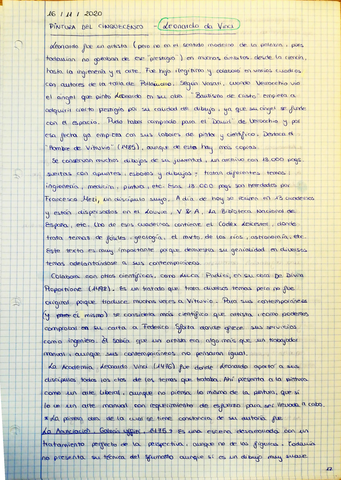 16 / 11 / 2020
PINTURA DEL CINQUECENTO - Leonardo da Vinci
Leonardo fue un artista (pero no en el sentido moderno de la palabra, pues
todavían no gozaban de ese "prestigio") en muchos ámbitos: desde la ciencia,
hasta la ingeniería y el arte. Fue hijo ilegítimo y colaboró en varios cuadros
con autores de la talla de Pollaiuolo. Según Vasari, cuando Verrocchio vio
el ángel que pintó Leonardo en su obra "Bautismo de Cristo" empezó a
adquirir cierto prestigio por su calidad de dibujo, ya que su ángel se funde
con el espacio. Posó como modelo para el David de Verrocchio y por
esa fecha ya empieza con sus labores de pintor y científico. Destaca el
"Hombre de Vitruvio" (1485), aunque de esta hay más copias.
Se conservan muchos dibujos de su juventud, un archivo con 13.000 pags
sueltas con apuntes, esbozos y dibujos; tratan diferentes temas:
ingeniería, medicina, pintura, etc. Esas 13.000 pags son heredadas por
Francesco Melzi, un discípulo suyo. A día de hoy se reúnen en 13 cuadernos
y están dispersados en el Louvre, V & A, La Biblioteca Nacional de
España, etc. Uno de esos cuadernos contiene el Codex Leicester, donde
trata temas de fósiles, geología, el movto. de los ríos, astronomía, etc.
Este texto es muy importante porque demuestra su genialidad en diversos
temas adelantándose a sus contemporáneos.
Colabora con otros científicos, como Lucca Pacioli, en su obra De Divina
Proportione (1498). Es un tratado que trata diversos temas pero no fue
original porque traduce muchas veces a Vitruvio. Para sus contemporáneos
(y para él mismo) se considera más científico que artista, como podemos
comprobar en su carta a Federico Sforza donde ofrece sus servicios
como ingeniero. Él sabía que un artista era algo más que un trabajador
manual, aunque sus contemporáneos no pensaran igual.
La Academia Leonardo Vinci (1475) fue donde Leonardo aportó a sus
discípulos todos los de los temas que trataba. Ahí presenta a la pintura
como un arte liberal, aunque no piensa lo mismo de la pintura, que sí
la ve un arte manual con requerimiento de esfuerzo para ser llevada a cabo.
La primera obra de la cual se tiene constancia de su autoría fue
La Anunciación, Galería Uffizi, 1475: Es una escena desarrollada con un
tratamiento perfecto de la perspectiva, aunque no de las figuras. Todavía
no presenta su técnica del sfumatto aunque sí es un dibujo muy suave.